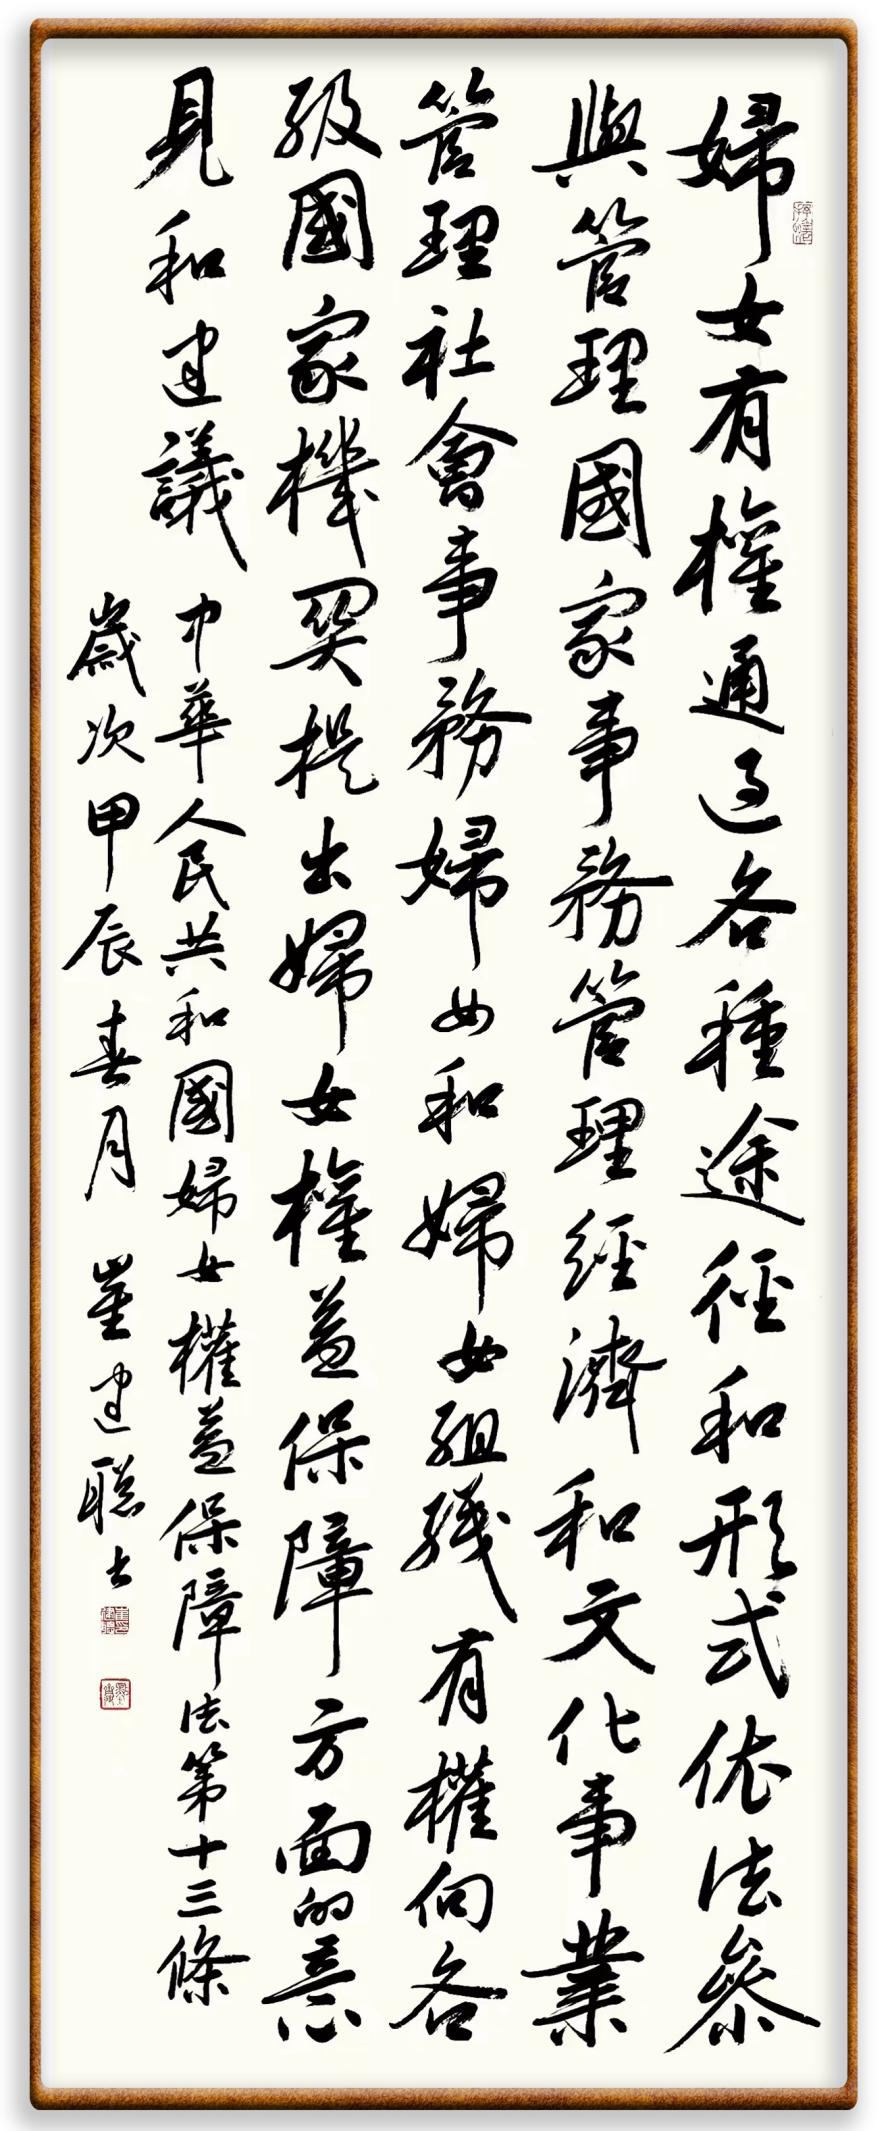 婦女有權通過各種途徑和形式依法參
與管理國家事務管理經濟和文化事業
管理社會事務婦女和婦女組織有權向各
級國家機關提出婦女權益保障方面的意
見和建議 中華人民共和國婦女權益保障法第十三條
歲次甲辰春月 崔建聰书